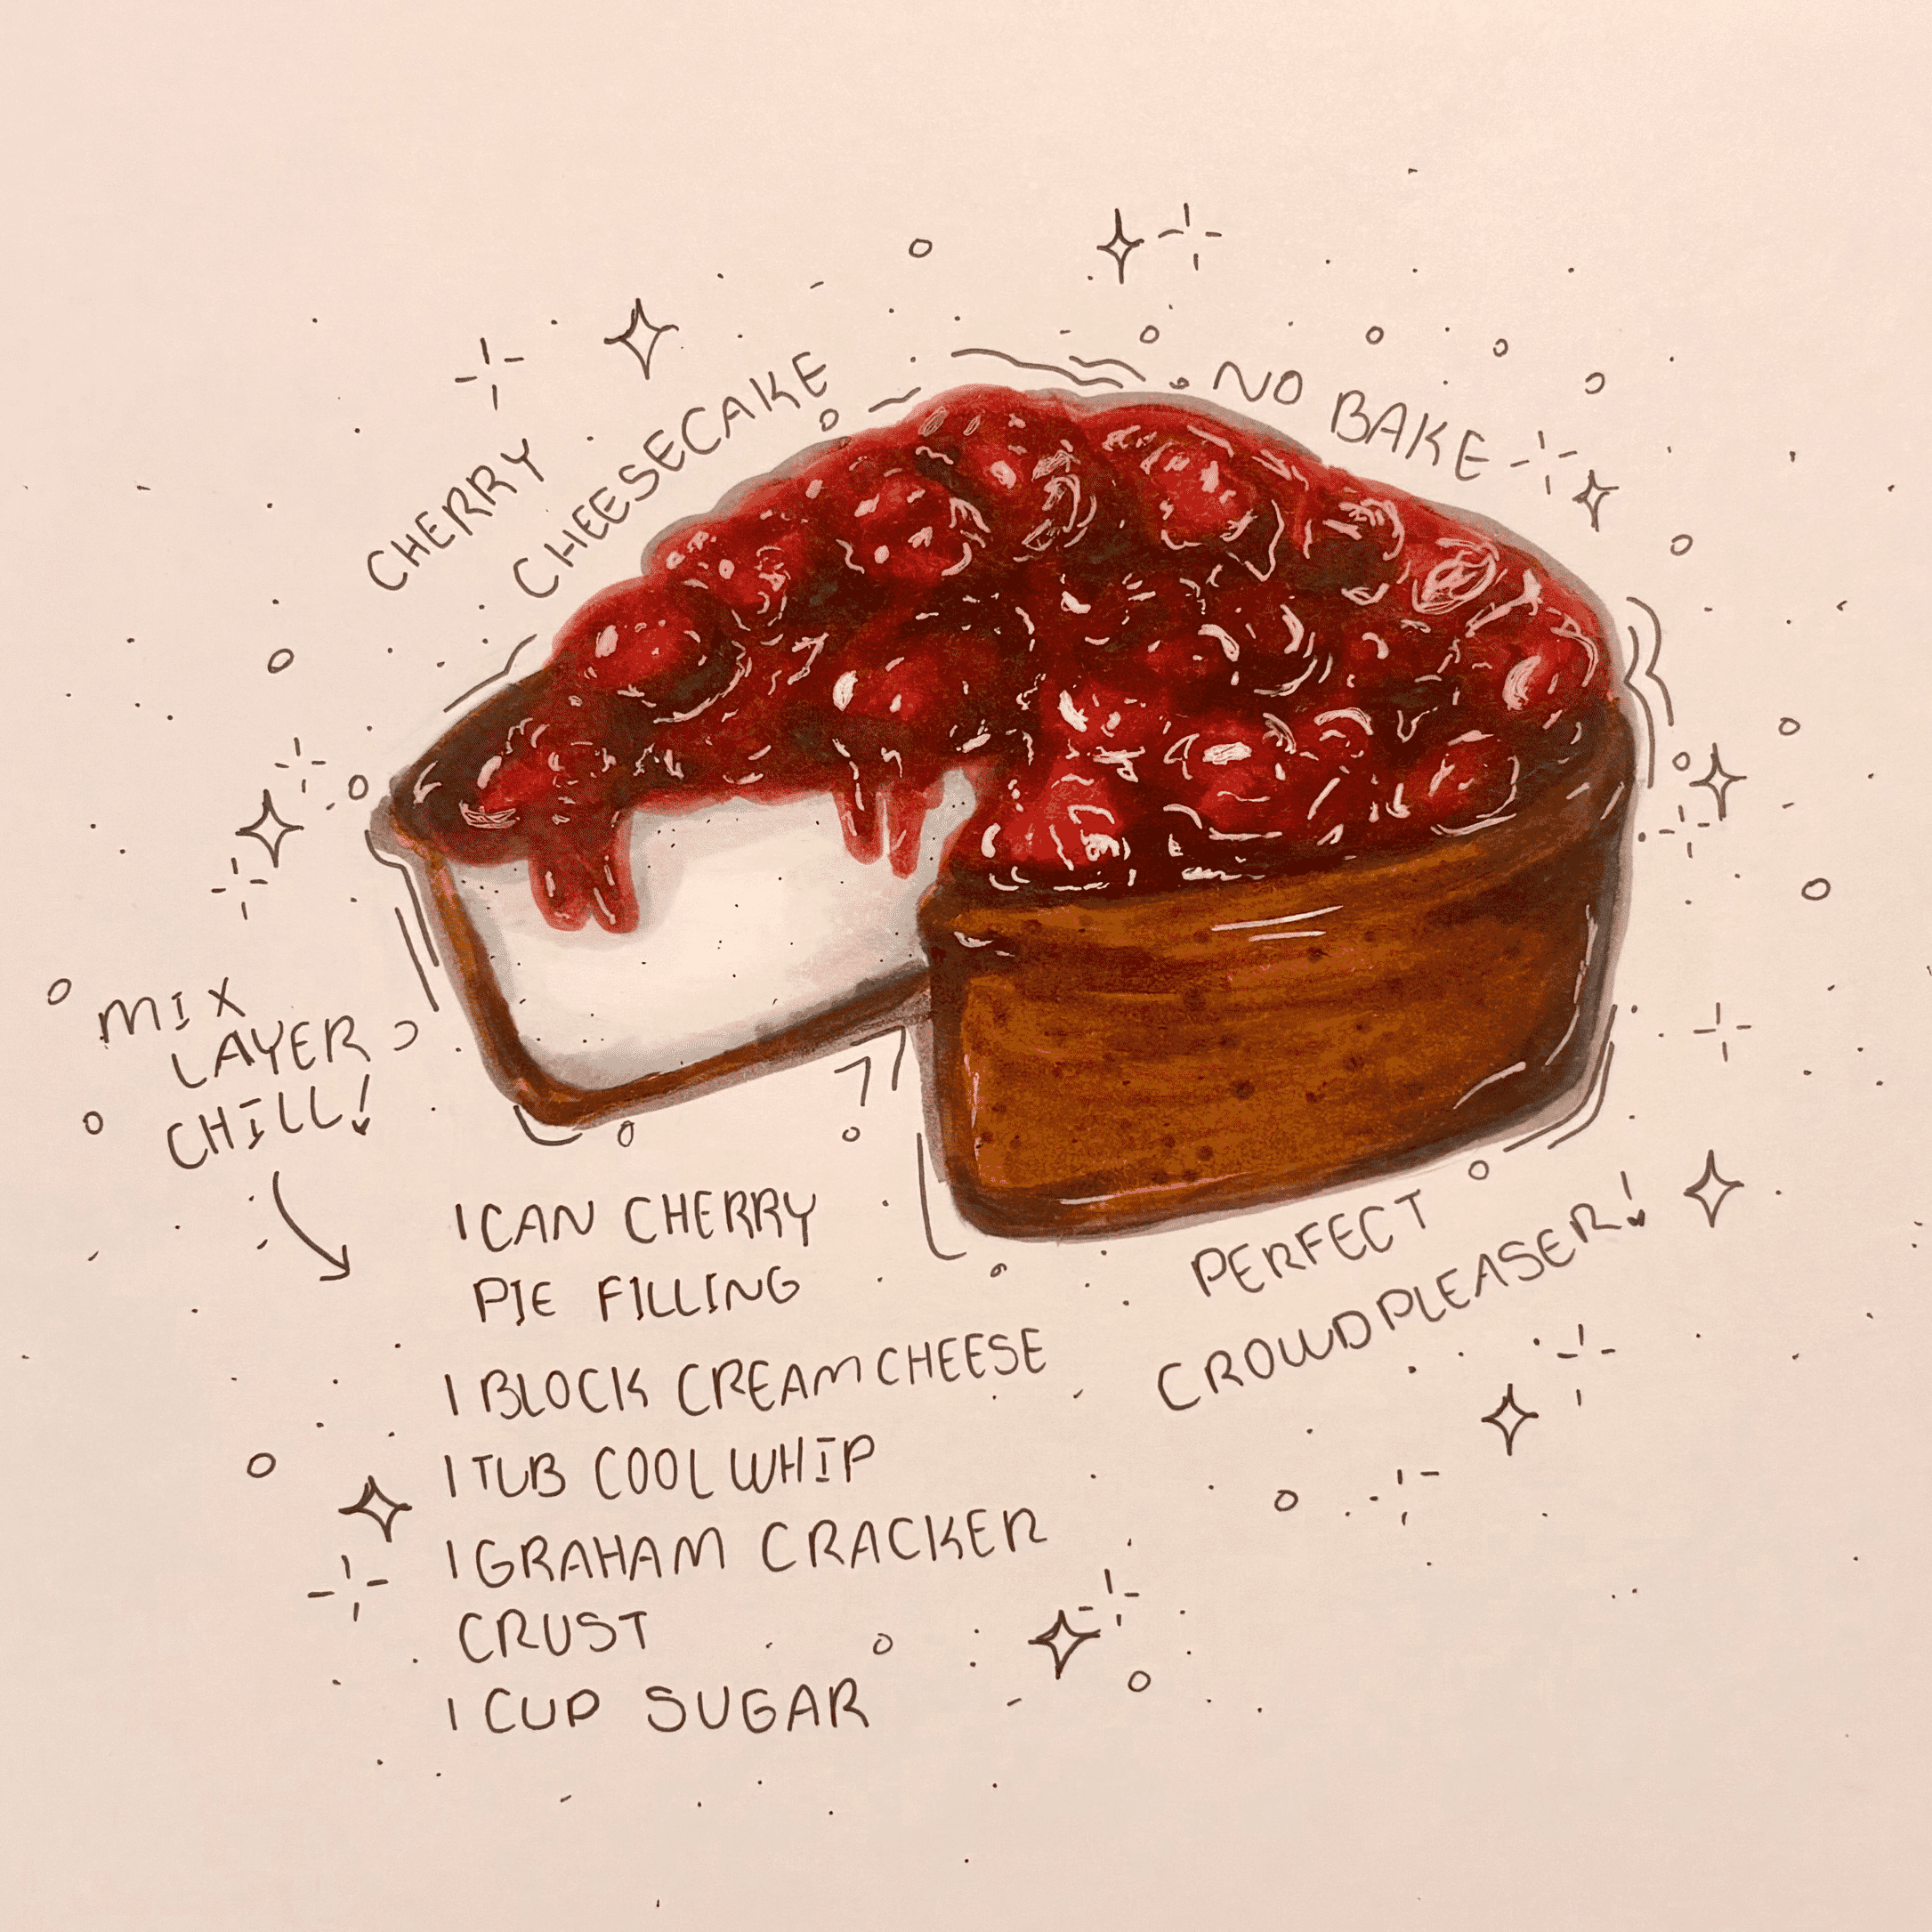 CHERRY
CHEESECAKE
NO BAKE
MIX
LAYER
CHILL!
1 CAN CHERRY
PIE FILLING
1 BLOCK CREAM CHEESE
1 TUB COOL WHIP
1 GRAHAM CRACKER
CRUST
1 CUP SUGAR
PERFECT
CROWD PLEASER!